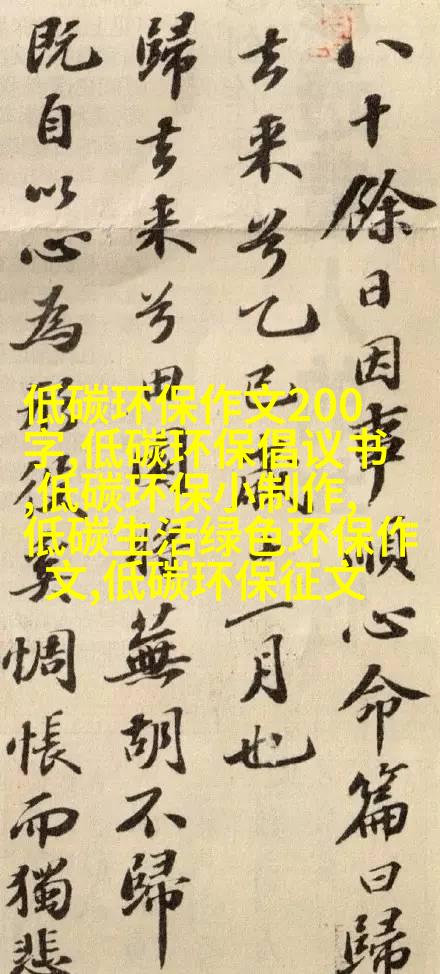 八十餘日因事順心命篇曰歸
去来兮乙巳歲十一月也
歸去来兮田園将蕪胡不歸
既自以心為形役奚惆悵而獨悲
低碳环保作文200
字,低碳环保倡议书
,低碳环保小制作,
低碳生活绿色环保作
文,低碳环保征文